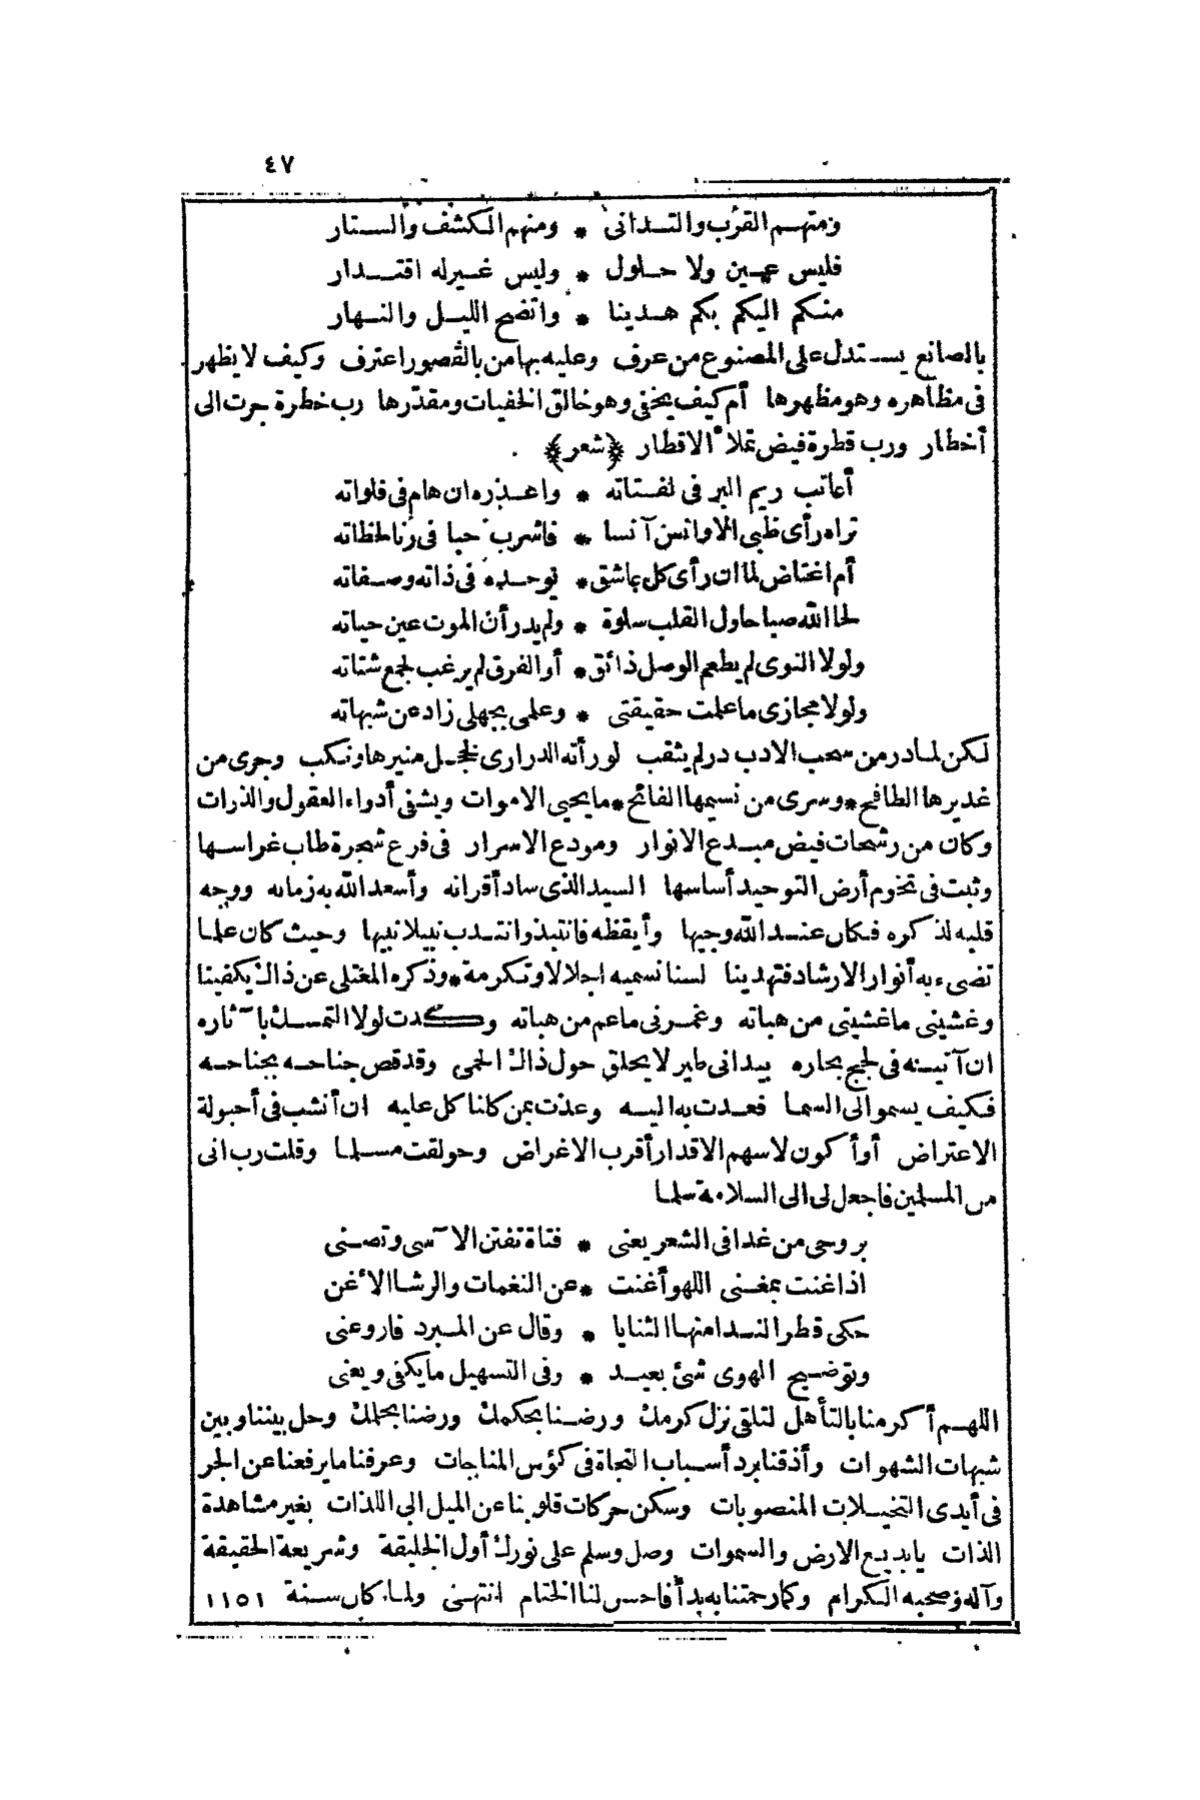 ٤٧
ومنهم القرب والتدانى * ومنهم الكشف والستار
فليس عين ولا حلول * وليس غيرله اقتدار
منكم اليكم بكم هدينا * واتضح الليل والنهار
بالصانع يستدل على المصنوع من عرف وعليه بها من بالقصور اعترف وكيف لا يظهر
فى مظاهره وهو مظهرها أم كيف يخفى وهو خالق الخفيات ومقدرها رب خطرة جرت الى
أخطار ورب قطرة فيض تملأ الاقطار ﴿شعر﴾
أعاتب ريم البر فى لفتاته * واعذره ان هام فى فلواته
تراه رأى ظبى الاوانس آنسا * فاشرب حبا فى رنا لحظاته
أم اغتاض لما ان رأى كل عاشق * توحده فى ذاته وصفاته
لحا الله صبا حاول القلب سلوة * ولم يدر أن الموت عين حياته
ولولا النوى لم يطعم الوصل ذائق * أو الفرق لم يرغب لجمع شتاته
ولولا مجازى ما علمت حقيقتى * وعلمى بجهلى زاد عن شبهاته
لكن لما در من سحب الادب در لم يثقب لو رأته الدرارى لخجل منيرها ونكب وجرى من
غديرها الطافح * وسرى من نسيمها الفائح * ما يحيى الاموات ويشفى أدواء العقول والذرات
وكان من رشحات فيض مبدع الانوار ومودع الاسرار فى فرع شجرة طاب غراسها
وثبت فى تخوم أرض التوحيد أساسها السيد الذى ساد أقرانه وأسعد الله به زمانه ووجه
قلبه لذكره فكان عند الله وجيها وأيقظه فانتبذ وانتدب نبيلا نبيها وحيث كان علما
تضىء به أنوار الارشاد فتهدينا لسنا نسميه اجلالا وتكرمة * وذكره المغتلى عن ذاك يكفينا
وغشينى ما غشيتى من هباته وغمرنى ما عم من هباته وكدت لولا التمسك بآثاره
ان آتينه فى لجج بحاره بيدانى طير لا يحلق حول ذاك الحمى وقد قص جناحه بجناحه
فكيف يسمو الى السما فعدت به اليه وعذت بمن كانا كل عليه ان أنشب فى أحبولة
الاعتراض أو أكون لاسهم الاقدار أقرب الاغراض وحولقت مسلما وقلت رب انى
من المسلمين فاجعل لى الى السلامة سلما
بروحى من غدا فى الشعر يعنى * فتاة تفتن الآسى وتضنى
اذا غنت بمغنى اللهو أغنت * عن النغمات والرشا الأغن
حكى قطر الندا منها الثنايا * وقال عن المبرد فاروعنى
وتوضيح الهوى شئ بعيد * وفى التسهيل ما يكفى ويغنى
اللهم أكرمنا بالتأهل لتلقى نزل كرمك ورضنا بحكمك ورضنا بحلمك وحل بيننا وبين
شبهات الشهوات وأذقنا برد أسباب النجاة فى كؤس المناجات وعرفنا ما يرفعنا عن الجر
فى أيدى التخيلات المنصوبات وسكن حركات قلوبنا عن الميل الى اللذات بغير مشاهدة
الذات يابديع الارض والسموات وصل وسلم على نورك أول الخليقة وشريعة الحقيقة
وآله وصحبه الكرام وكما رحمتنا به بدأ فاحسن لنا الختام انتهى ولما كان سنة ١١٥١